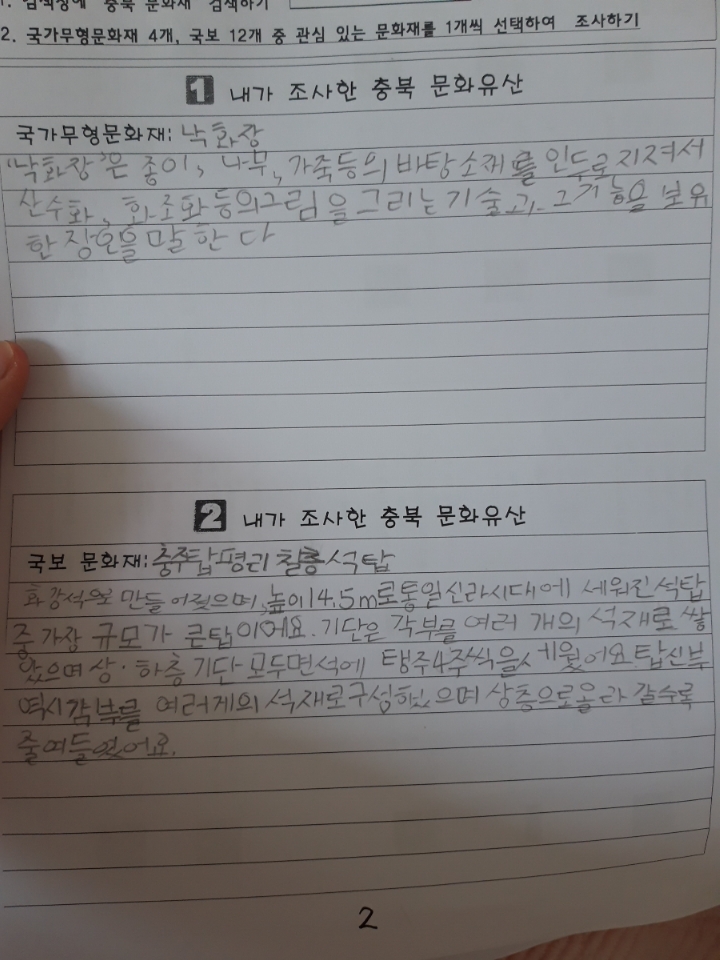 1. 검색창에 충북 문화재 검색하기
2. 국가무형문화재 4개, 국보 12개 중 관심 있는 문화재를 1개씩 선택하여 조사하기
1 내가 조사한 충북 문화유산
국가무형문화재: 낙화장
'낙화장'은 종이, 나무, 가죽등의 바탕소재를 인두로 지져서
산수화, 화조화 등의그림을그리는기술과 그기능을 보유
한 장인을말한다
2 내가 조사한 충북 문화유산
국보 문화재: 충주탑평리 칠층석탑
화강석으로 만들어졌으며, 높이14.5m로통일신라시대에 세워진석탑
중 가장 규모가 큰탑이에요. 기단은 각부를 여러 개의 석재로 쌓
았으며 상·하층기단 모두면석에 탱주4주씩을세웠어요. 탑신부
역시각부를 여러게의 석재로구성했으며 상층으로올라 갈수록
줄여들었어요.
2